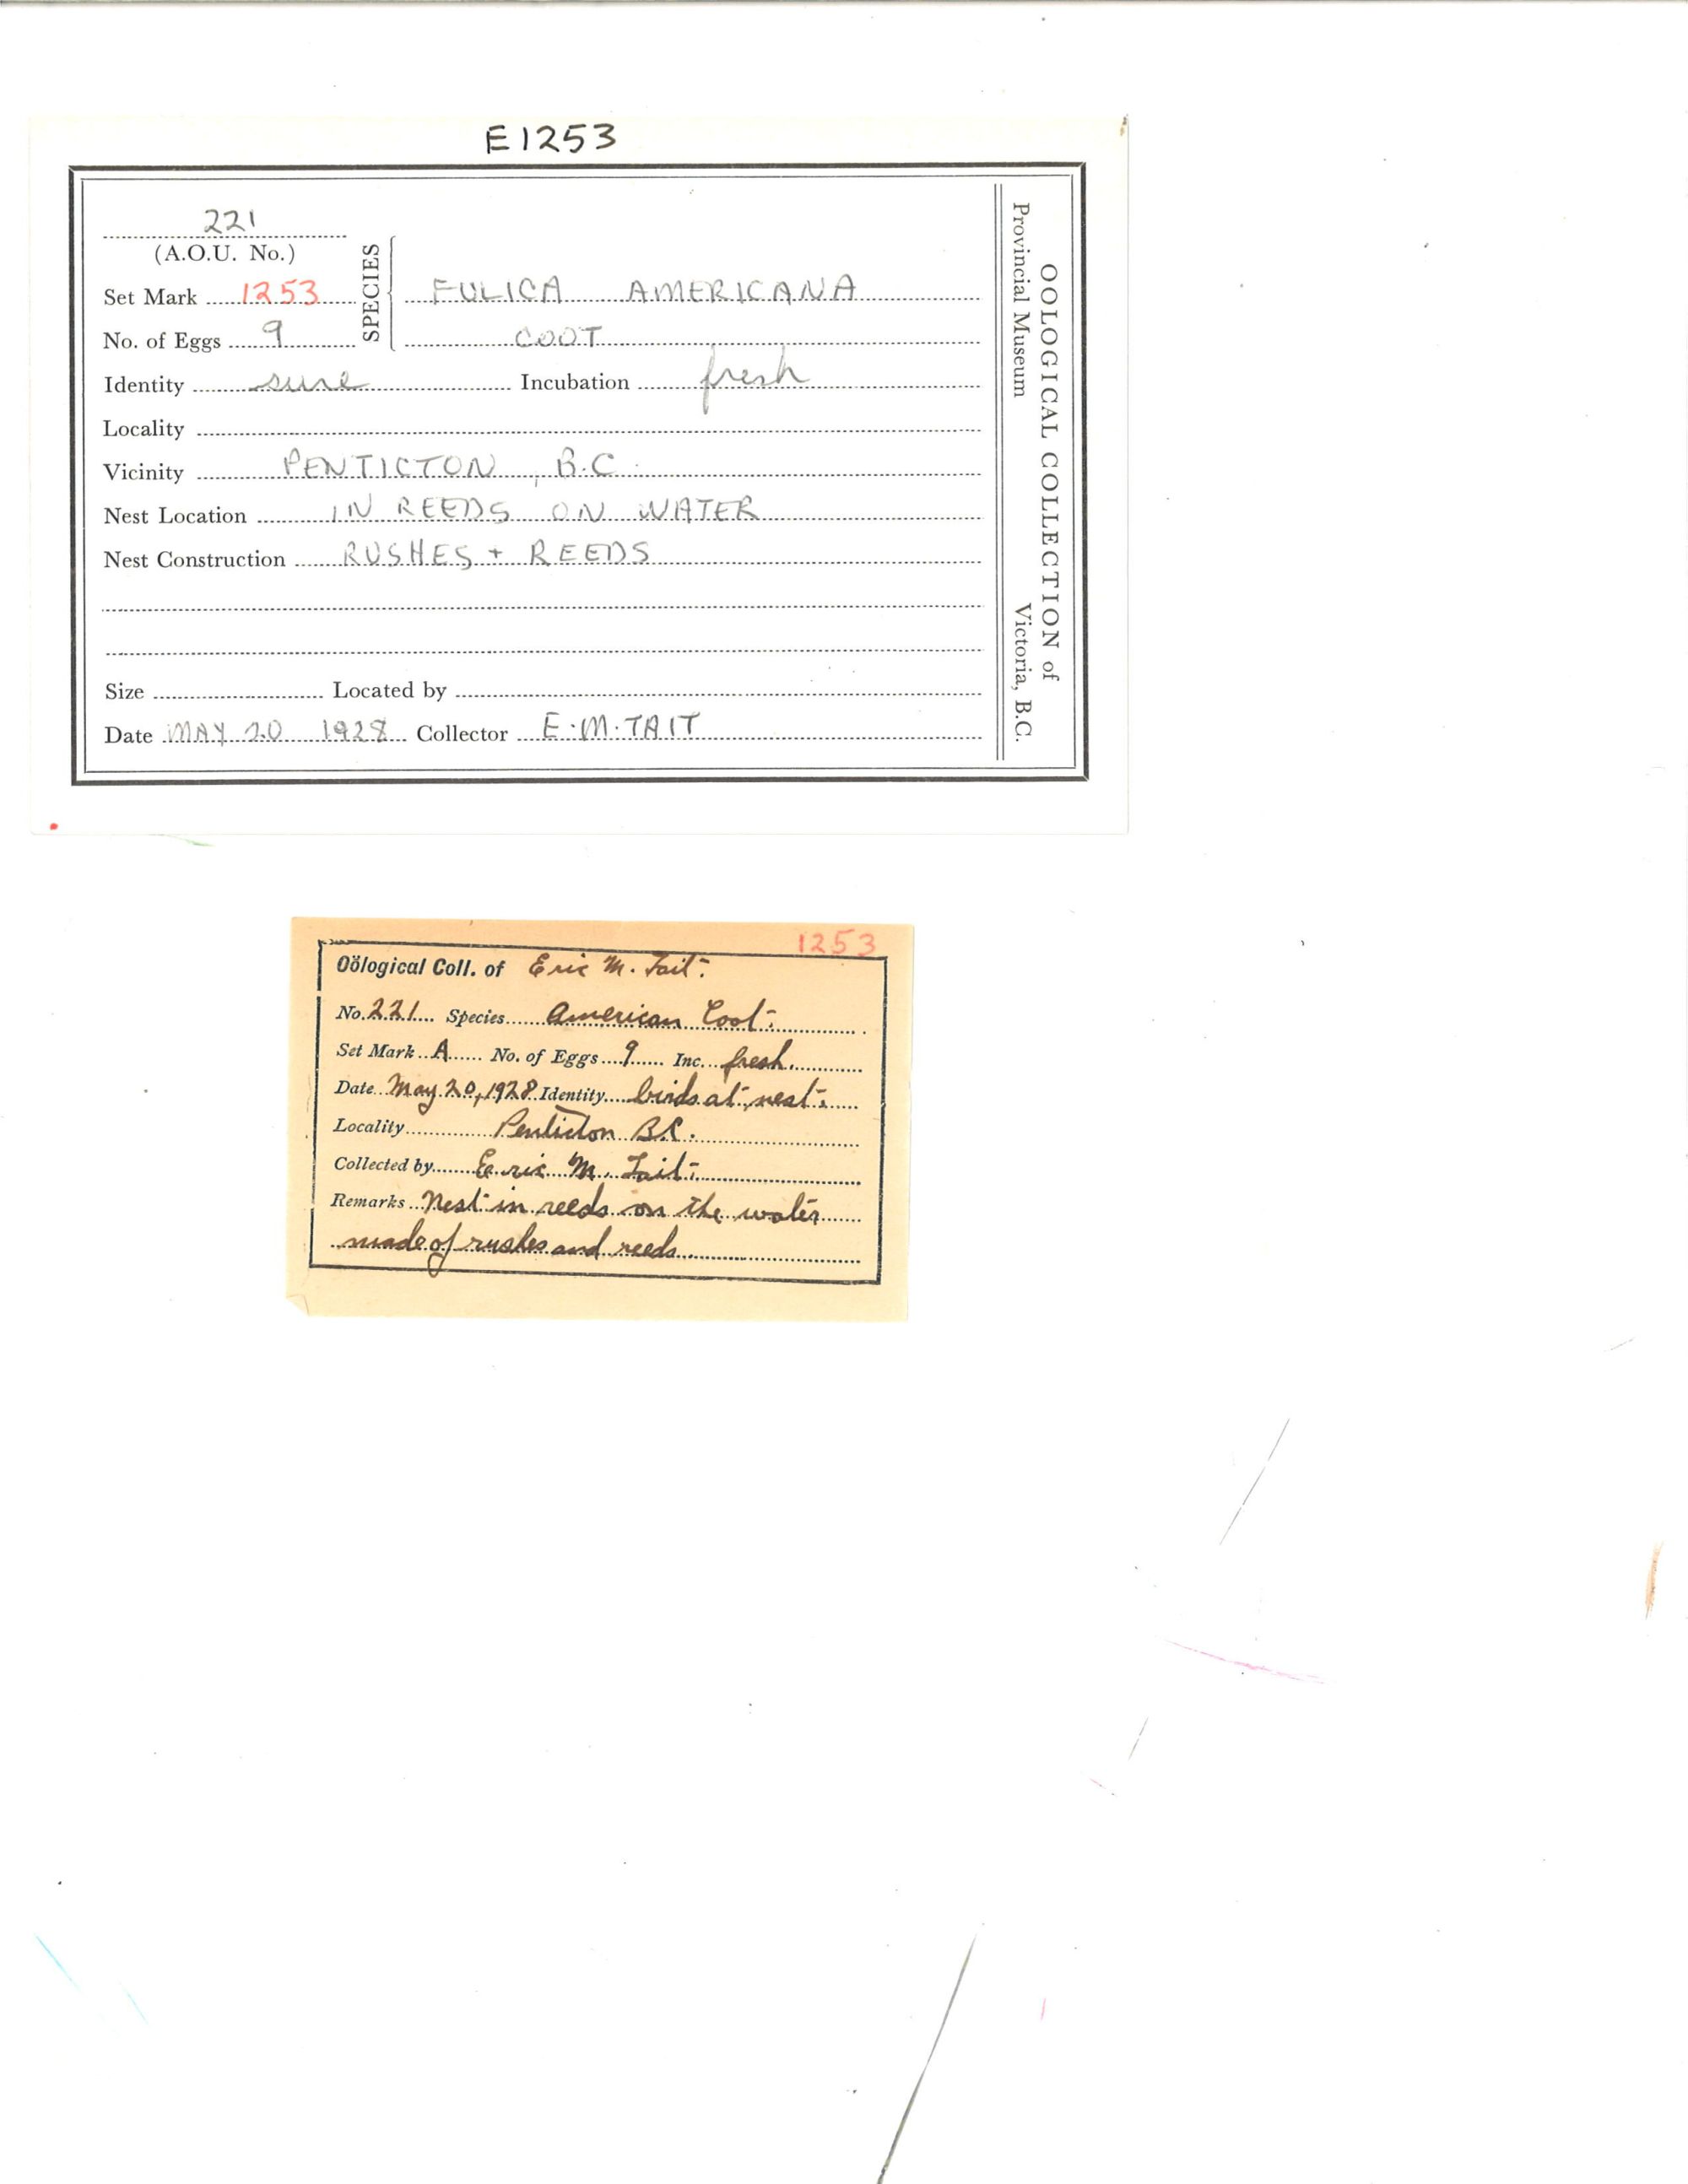 E1253
221
(A.O.U. No.)
SPECIES
Set Mark 1253
FULICA AMERICANA
No. of Eggs 9
COOT
Identity sure Incubation fresh
Locality
Vicinity PENTICTON, B.C.
Nest Location IN REEDS ON WATER
Nest Construction RUSHES + REEDS
Size Located by
Date MAY 20 1928 Collector E.M. TAIT
OOLOGICAL COLLECTION of
Provincial Museum Victoria, B.C.
1253
Oölogical Coll. of Eric M. Tait.
No. 221 Species American Coot.
Set Mark A No. of Eggs 9 Inc. fresh.
Date May 20, 1928 Identity birds at nest.
Locality Penticton B.C.
Collected by Eric M. Tait.
Remarks Nest in reeds on the water
made of rushes and reeds